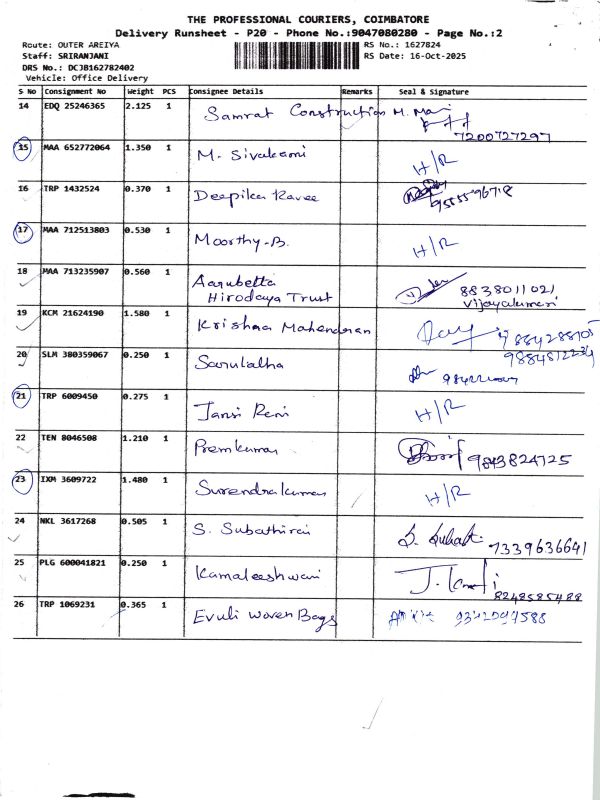 THE PROFESSIONAL COURIERS, COIMBATORE
Delivery Runsheet - P20 - Phone No.:9047080280 - Page No.:2
Route: OUTER AREIYA
RS No.: 1627824
Staff: SRIRANJANI
RS Date: 16-Oct-2025
DRS No.: DCJB162782402
Vehicle: Office Delivery
S No Consignment No Weight PCS Consignee Details Remarks Seal & Signature
14 EDQ 25246365 2.125 1 Samrat Construction M. Mani
7200727297
15 MAA 652772064 1.350 1 M. Sivakami H/R
16 TRP 1432524 0.370 1 Deepika Ravee
17 MAA 712513803 0.530 1 Moorthy-B. H/R
18 MAA 713235907 0.560 1 Aarubetta
Hirodaya Trust 8838011021
Vijayakumari
19 KCM 21624190 1.580 1 Krishna Mahendran
9884812234
20 SLM 380359067 0.250 1 Sarulatha
21 TRP 6009450 0.275 1 Jansi Reni H/R
22 TEN 8046508 1.210 1 Premkumar 9843824725
23 IXM 3609722 1.480 1 Surendrakumar H/R
24 NKL 3617268 0.505 1 S. Subathirai
7339636641
25 PLG 600041821 0.250 1 Kamaleeshwari
8248585488
26 TRP 1069231 0.365 1 Evuli Woven Bags